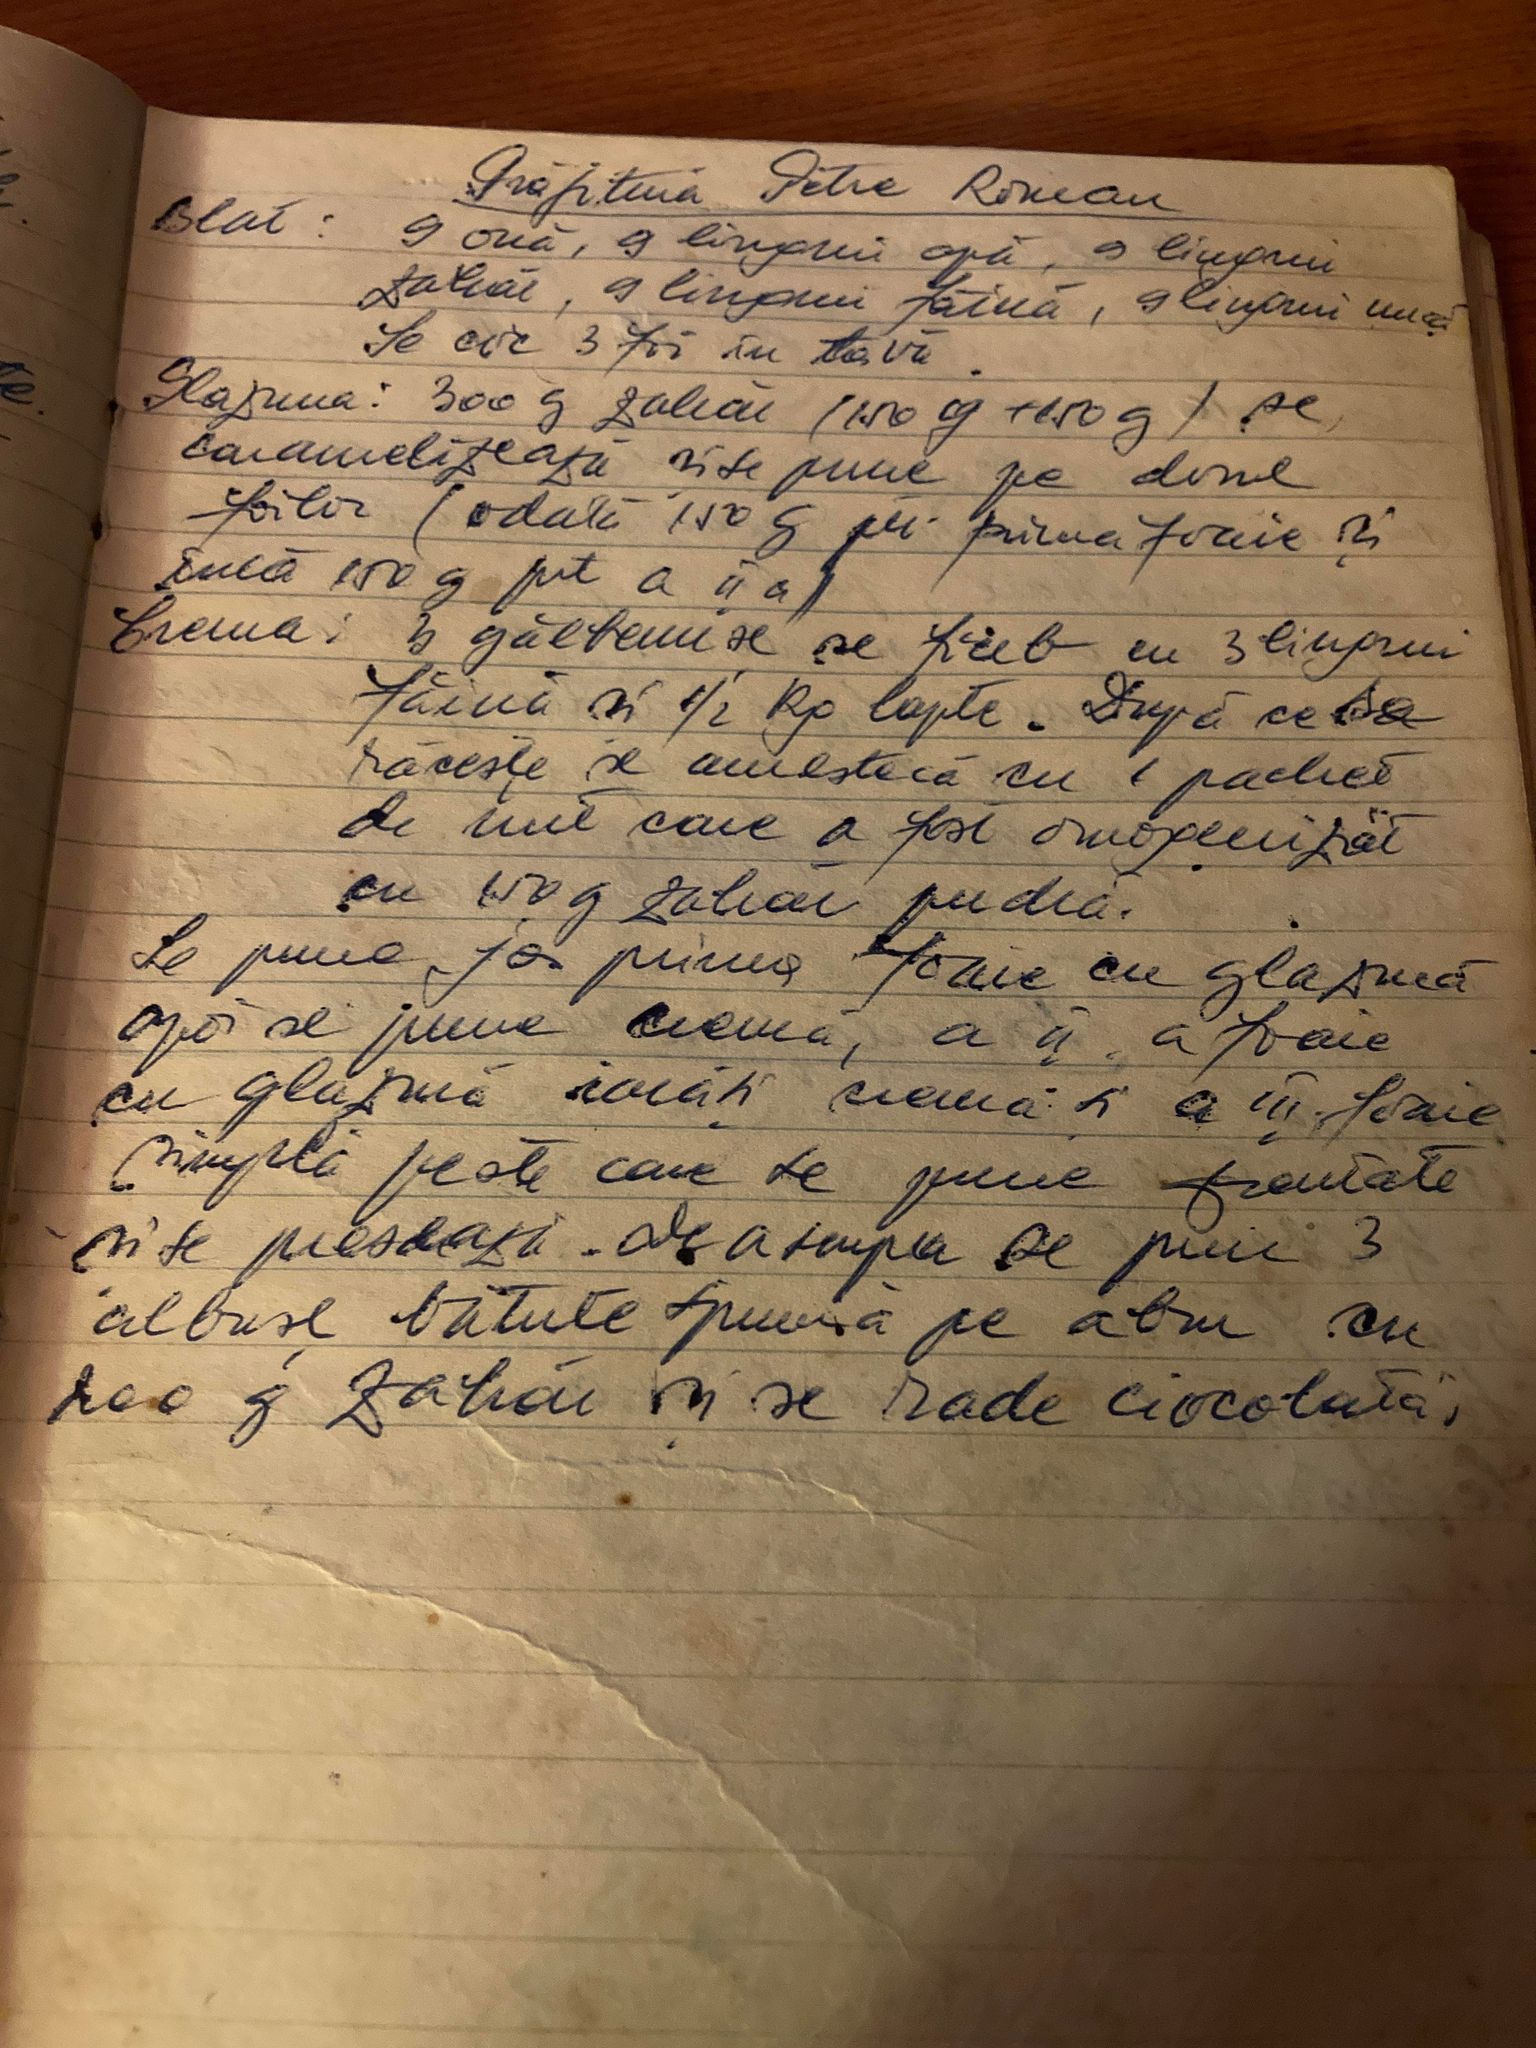 Prăjitura Petre Roman
Blat: 9 ouă, 9 linguri apă, 9 linguri
zahăr, 9 linguri făină, 9 linguri nucă
Se coc 3 foi în tavă.
Glazura: 300 g zahăr (150 g + 150 g) se
caramelizează și se pune pe două
foilor (odată 150 g ptr. prima foaie și
încă 150 g pt a II a)
Crema: 3 gălbenușe se fierb cu 3 linguri
făină și 1/2 kg lapte. După ce se
răcește se amestecă cu 1 pachet
de unt care a fost omogenizat
cu 150 g zahăr pudră.
Se pune jos prima foaie cu glazură
apoi se pune cremă, a II a foaie
cu glazură iarăși cremă și a III foaie
simplă peste care se pune greutate
și se presează. Deasupra se pun 3
albușe bătute spumă pe abur cu
200 g zahăr și se rade ciocolată.